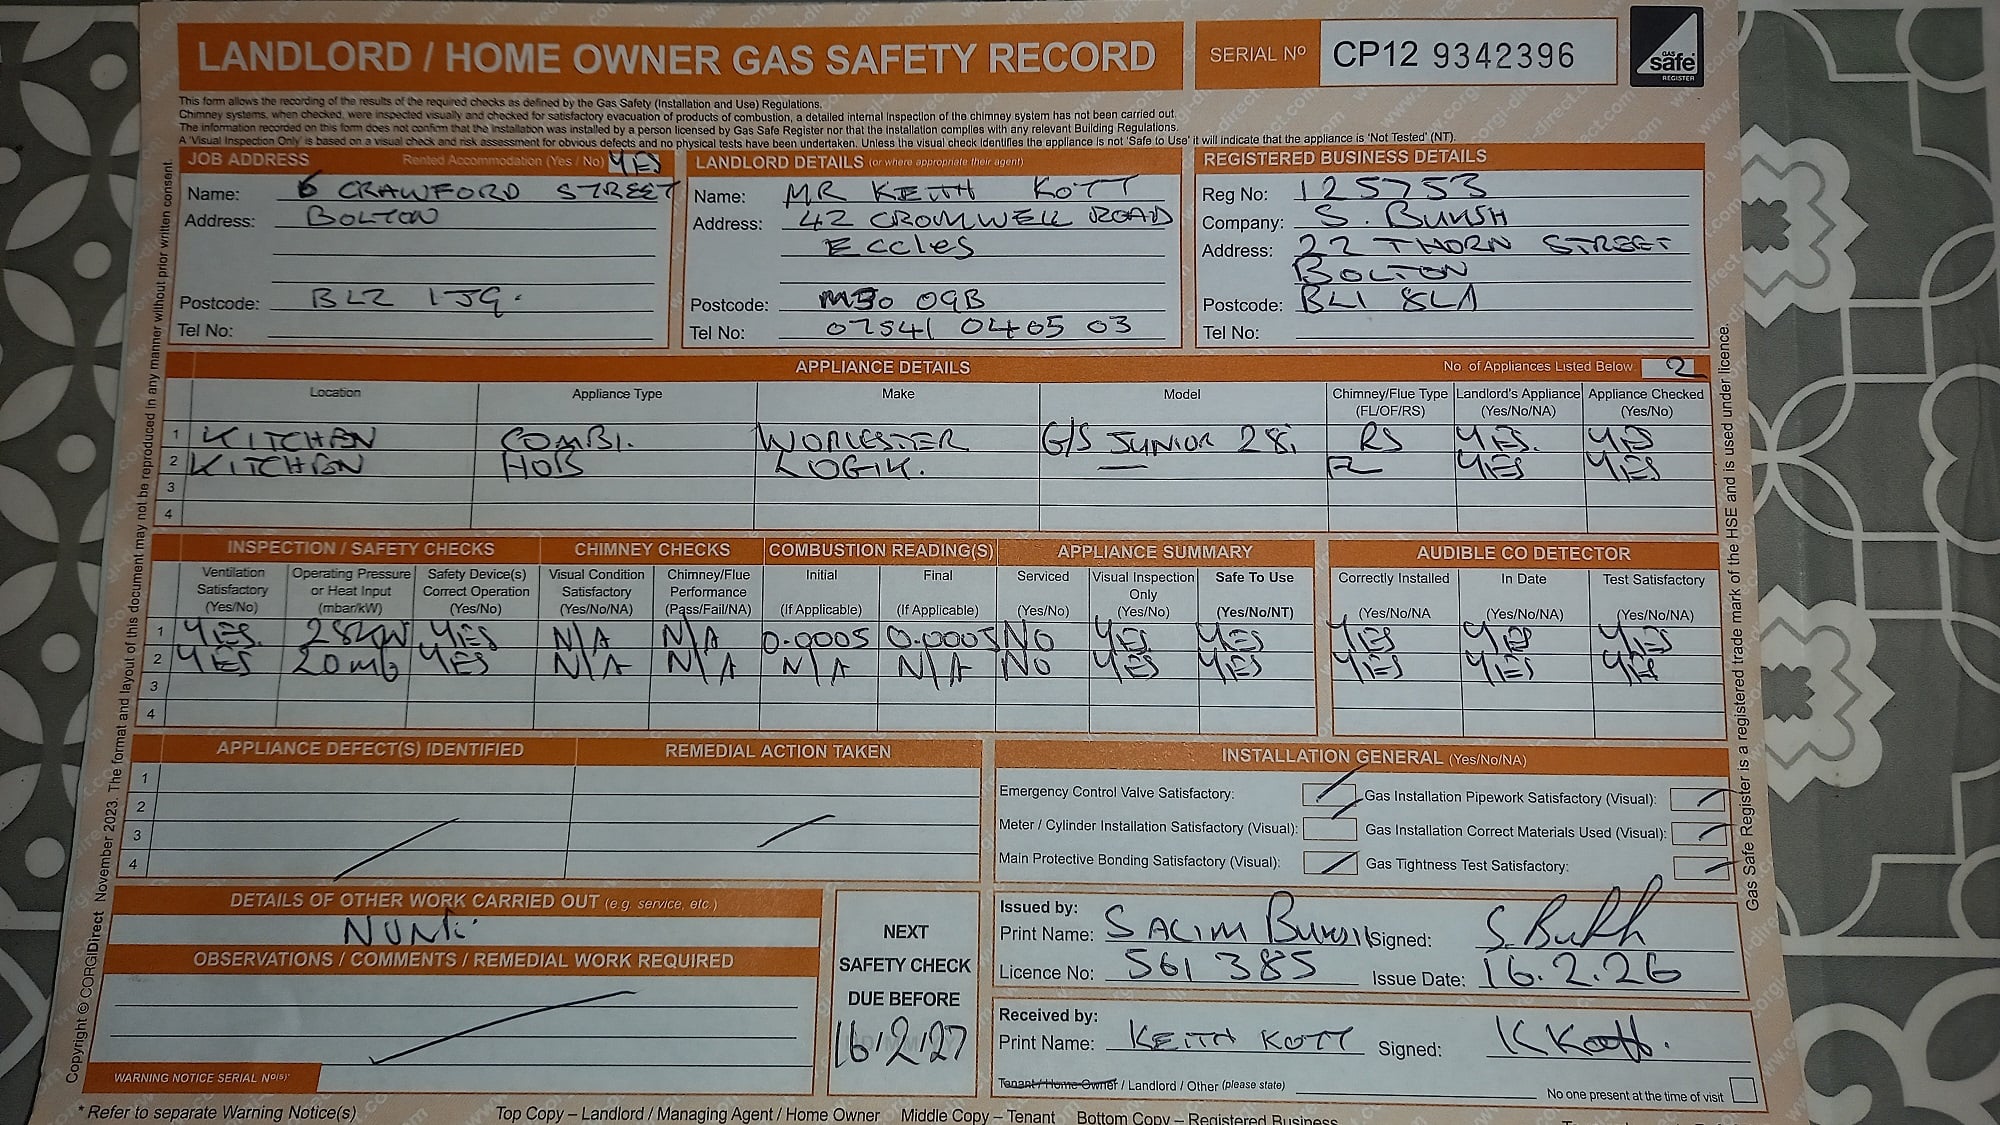 LANDLORD / HOME OWNER GAS SAFETY RECORD
SERIAL Nº CP12 9342396
GAS safe REGISTER
This form allows the recording of the results of the required checks as defined by the Gas Safety (Installation and Use) Regulations.
Chimney systems, when checked, were inspected visually and checked for satisfactory evacuation of products of combustion, a detailed internal Inspection of the chimney system has not been carried out.
The information recorded on this form does not confirm that the installation was installed by a person licensed by Gas Safe Register nor that the Installation complies with any relevant Building Regulations.
A 'Visual Inspection Only' is based on a visual check and risk assessment for obvious defects and no physical tests have been undertaken. Unless the visual check Identifies the appliance is not 'Safe to Use' it will indicate that the appliance is 'Not Tested' (NT).
JOB ADDRESS Rented Accommodation (Yes / No) YES
Name: 6 CRAWFORD STREET
Address: BOLTON
Postcode: BL2 1JG.
Tel No:
LANDLORD DETAILS (or where appropriate their agent)
Name: MR KEITH KOTT
Address: 42 CROMWELL ROAD
ECCLES
Postcode: M30 0GB
Tel No: 07541 0405 03
REGISTERED BUSINESS DETAILS
Reg No: 125753
Company: S. BUKSH
Address: 22 THORN STREET
BOLTON
Postcode: BL1 8LA
Tel No:
APPLIANCE DETAILS
No. of Appliances Listed Below 2
Location Appliance Type Make Model Chimney/Flue Type (FL/OF/RS) Landlord's Appliance (Yes/No/NA) Appliance Checked (Yes/No)
1 KITCHEN COMBI. WORCESTER G/S JUNIOR 28i RS YES. YES
2 KITCHEN HOB LOGIK. — FL YES YES
3
4
INSPECTION / SAFETY CHECKS CHIMNEY CHECKS COMBUSTION READING(S) APPLIANCE SUMMARY AUDIBLE CO DETECTOR
Ventilation Satisfactory (Yes/No) Operating Pressure or Heat Input (mbar/kW) Safety Device(s) Correct Operation (Yes/No) Visual Condition Satisfactory (Yes/No/NA) Chimney/Flue Performance (Pass/Fail/NA) Initial (If Applicable) Final (If Applicable) Serviced (Yes/No) Visual Inspection Only (Yes/No) Safe To Use (Yes/No/NT) Correctly Installed (Yes/No/NA In Date (Yes/No/NA) Test Satisfactory (Yes/No/NA)
1 YES. 28KW YES N/A N/A 0.0005 0.0005 NO YES YES YES YES YES
2 YES 20mb YES N/A N/A N/A N/A NO YES YES YES YES YES
3
4
APPLIANCE DEFECT(S) IDENTIFIED REMEDIAL ACTION TAKEN
1
2
3
4
INSTALLATION GENERAL (Yes/No/NA)
Emergency Control Valve Satisfactory: Gas Installation Pipework Satisfactory (Visual):
Meter / Cylinder Installation Satisfactory (Visual): Gas Installation Correct Materials Used (Visual):
Main Protective Bonding Satisfactory (Visual): Gas Tightness Test Satisfactory:
DETAILS OF OTHER WORK CARRIED OUT (e.g. service, etc.)
OBSERVATIONS / COMMENTS / REMEDIAL WORK REQUIRED
WARNING NOTICE SERIAL Nº(S)*
NEXT
SAFETY CHECK
DUE BEFORE
16/2/27
Issued by:
Print Name: SALIM BUKSH Signed: S. Bukh
Licence No: 561385 Issue Date: 16.2.26
Received by:
Print Name: KEITH KOTT Signed: K Kott.
Tenant / Home Owner / Landlord / Other (please state)
No one present at the time of visit
* Refer to separate Warning Notice(s)
Top Copy – Landlord / Managing Agent / Home Owner Middle Copy – Tenant Bottom Copy – Registered Business
Copyright © CORGIDirect November 2023. The format and layout of this document may not be reproduced in any manner without prior written consent.
Gas Safe Register is a registered trade mark of the HSE and is used under licence.